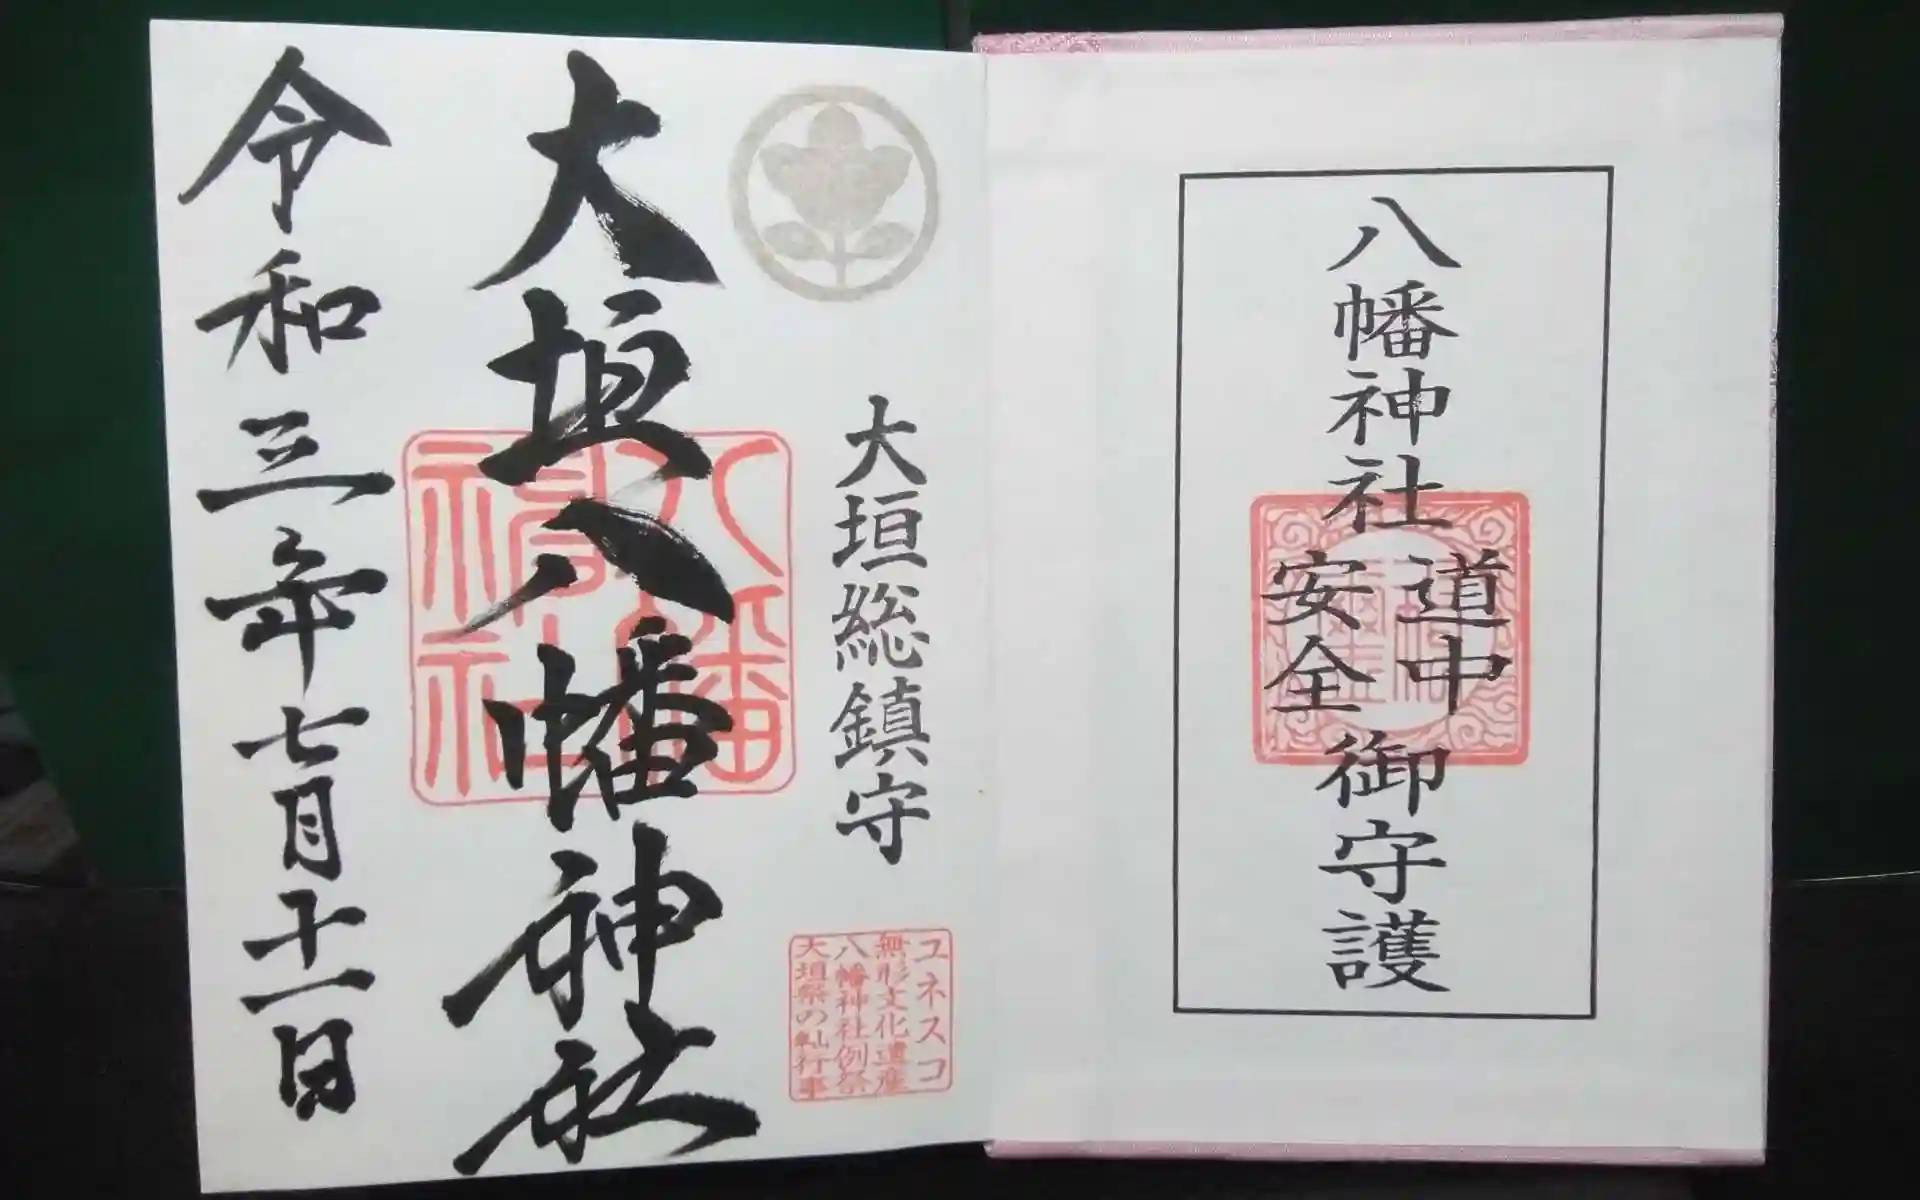 八幡神社
道中
安全
御守護
大垣総鎮守
ユネスコ
無形文化遺産
八幡神社例祭
大垣祭の䡄行事
大垣八幡神社
八幡
神社
令和三年七月十一日